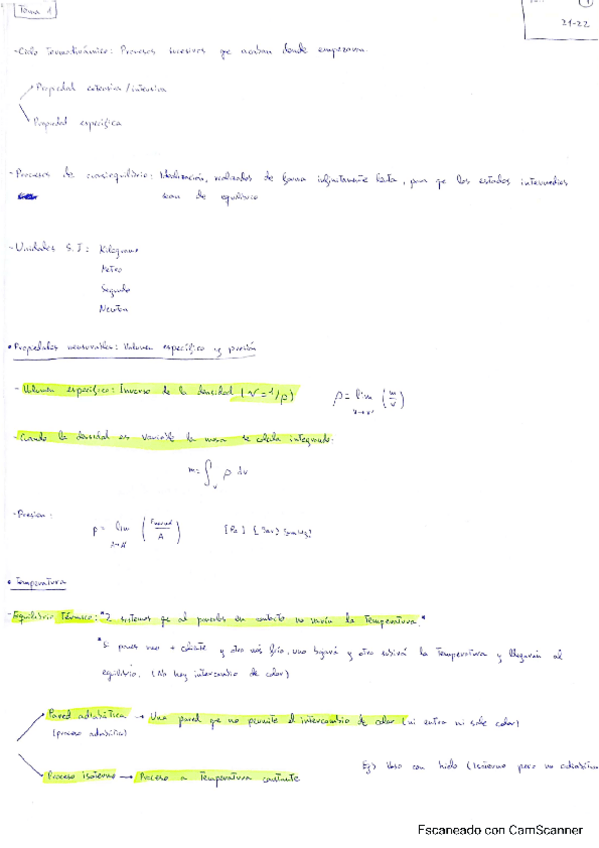 Tema 1
1
21-22
- Ciclo Termodinámico: Procesos sucesivos que acaban donde empezaron.
Propiedad extensiva / intensiva
Propiedad específica
- Procesos de cuasiequilibrio: Idealización, realizados de forma infinitamente lenta, para que los estados intermedios
sean de equilibrio
- Unidades S.I: Kilogramo
Metro
Segundo
Newton
• Propiedades mensurables: Volumen específico y presión
- Volumen específico: Inverso de la densidad (v = 1/ρ) ρ = lim (m/V)
- Cuando la densidad es variable la masa se calcula integrando:
m = ∫v ρ dv
- Presion:
P = lim (F normal / A) [Pa] [bar]
A→A'
• Temperatura
- Equilibrio Térmico: "2 sistemas que al ponerlos en contacto no varían la Temperatura."
"Si pones uno + caliente y otro más frío, uno bajará y otro subirá la Temperatura y llegarán al
equilibrio. (No hay intercambio de calor)
Pared adiabática → Una pared que no permite el intercambio de calor (ni entra ni sale calor)
(proceso adiabático)
Proceso isotermo → Proceso a Temperatura constante Ej) Vaso con hielo (Isotermo pero no adiabátic
Escaneado con CamScanner